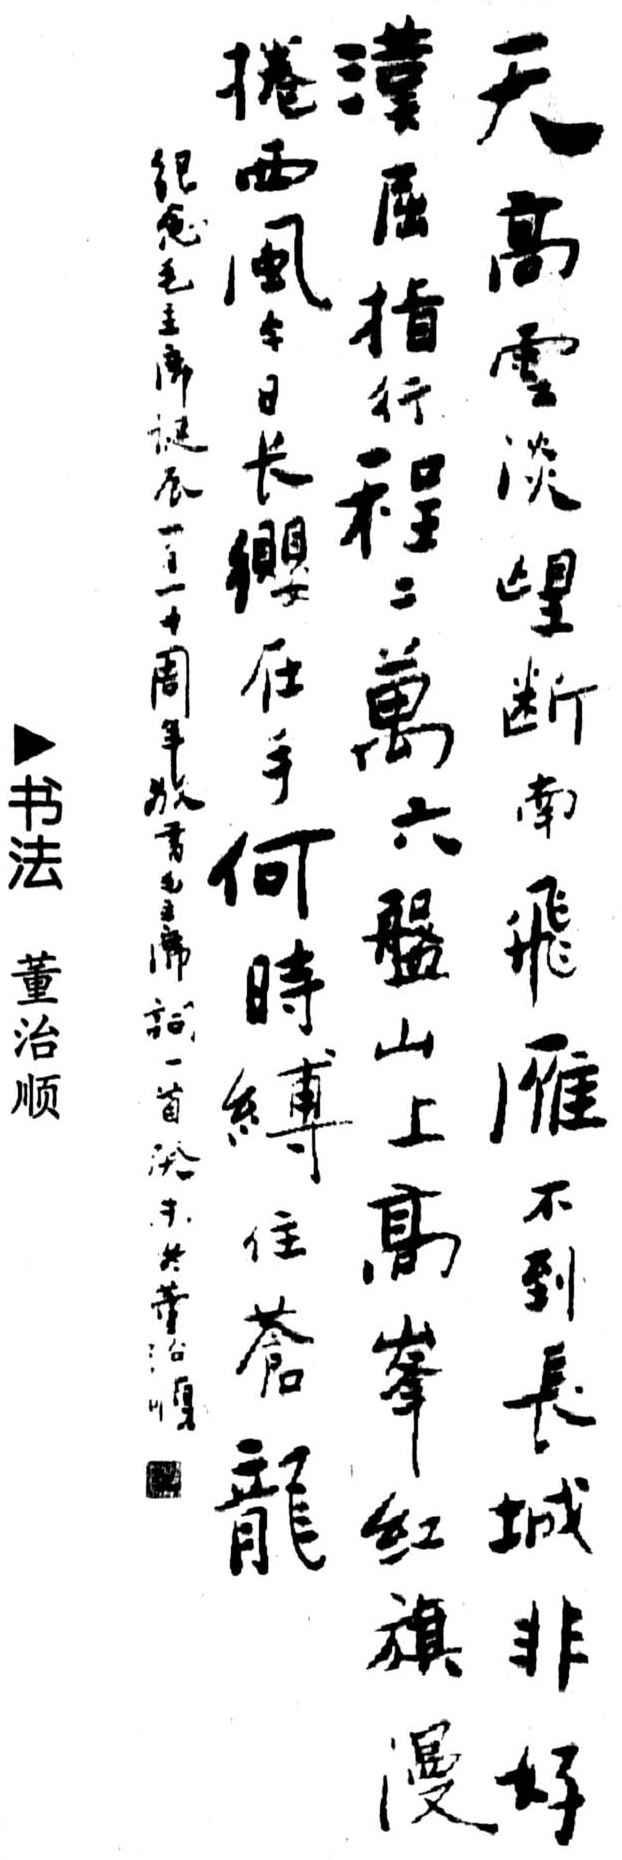 天高雲淡望断南飛雁不到長城非好
漢屈指行程二萬六盤山上高峯紅旗漫
捲西風今日长纓在手何時縛住蒼龍
纪念毛主席诞辰一百一十周年敬書毛主席詞一首癸未冬董治順
▶书法 董治顺